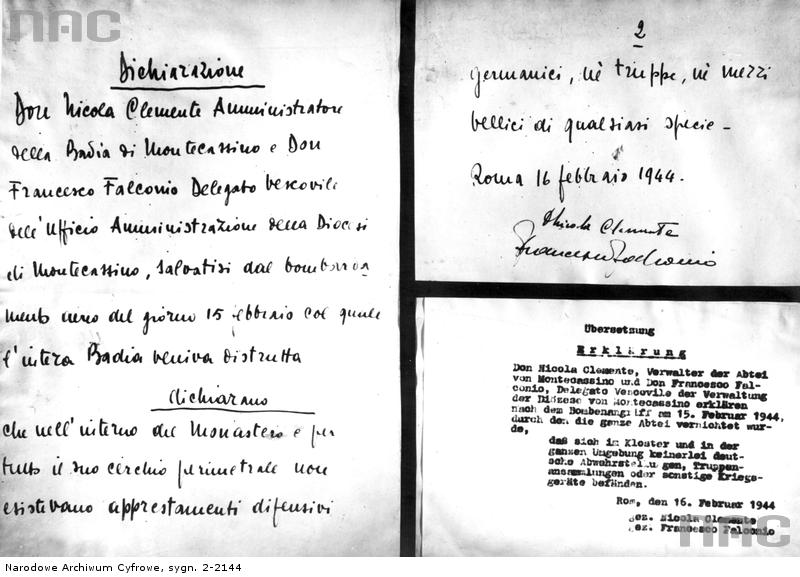 NAC
Dichiarazione
Don Nicola Clemente Amministratore
della Badia di Montecassino e Don
Francesco Falconio Delegato Vescovile
dell'Ufficio Amministrazione della Diocesi
di Montecassino, salvatisi dal bombarda
mento aereo del giorno 15 febbraio col quale
l'intera Badia veniva distrutta
dichiarano
che nell'interno del Monastero e per
tutto il suo cerchio perimetrale non
esistevano apprestamenti difensivi
2
germanici, nè truppe, nè mezzi
bellici di qualsiasi specie -
Roma 16 febbraio 1944.
Nicola Clemente
Francesco Falconio
Übersetzung
Erklärung
Don Nicola Clemente, Verwalter der Abtei
von Montecassino und Don Francesco Fal-
conio, Delegato Vescovile der Verwaltung
der Diözese von Montecassino erklären
nach dem Bombenangriff am 15. Februar 1944,
durch den die ganze Abtei vernichtet wur-
de,
daß sich im Kloster und in der
ganzen Umgebung keinerlei deut-
sche Abwehrstellungen, Truppen-
ansammlungen oder sonstige Kriegs-
geräte befanden.
Rom, den 16. Februar 1944
gez. Nicola Clemente
gez. Francesco Falconio
NAC
Narodowe Archiwum Cyfrowe, sygn. 2-2144